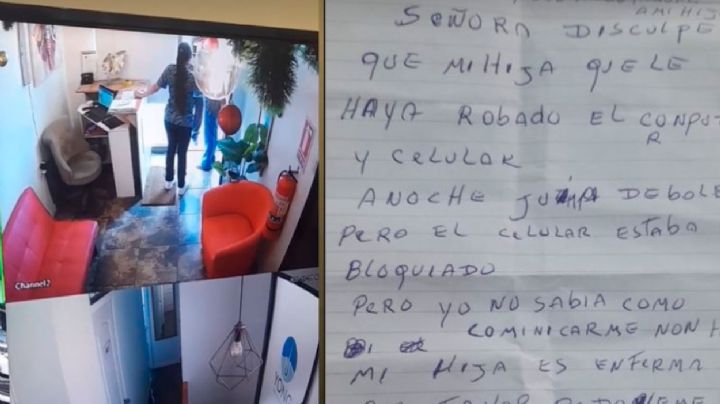 Channel2
AMI HIJ
SEÑORA DISCULPE
QUE MI HIJA QUE LE
HAYA ROBADO EL CONPUT
R
Y CELULAR
ANOCHE DEBOL
PERO EL CELULAR ESTABA
BLOQUIADO
PERO YO NO SABIA COMO
COMINICARME NON H
MI HIJA ES ENFERMA